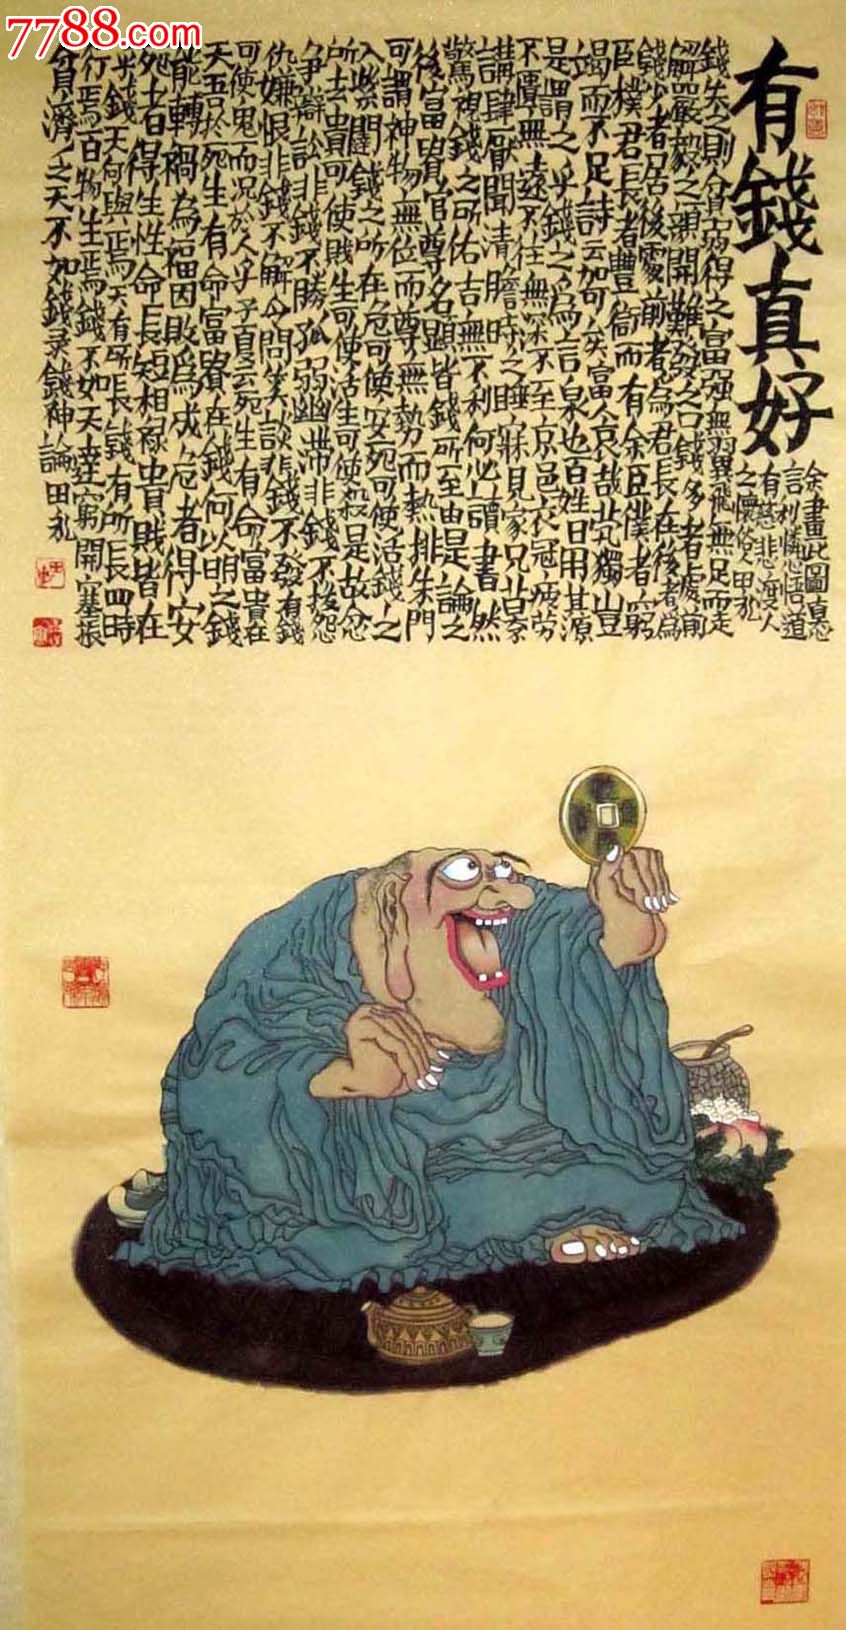 7788.com
有錢真好
余畫此圖真恐
言利 悟道
有慈悲度人
之懷俗人田
錢失之則貧弱得之富強無翼飛無足而走
解嚴毅之顏開難發之口錢多者處前
錢少者居後處前者為君長在後者為
臣僕君長者豐衍而有余臣僕者窮
竭而不足詩云哿矣富人哀哉煢獨豈
是謂之乎錢之為言泉也百姓日用其源
不匱無遠不往無深不至京邑衣冠疲勞
講肆厭聞清談時之睡寐見家兄莫
驚視錢之所佑吉無不利何必讀書然
後富貴官尊名顯皆錢所至由是論之
可謂神物無位而尊無勢而熱排朱門
入紫闥錢之所在危可使安死可使活錢之
所去貴可使賤生可使活生可使殺是故忿
爭辯訟非錢不勝孤弱幽滯非錢不拔怨
仇嫌恨非錢不解令問笑談非錢不發有錢
可使鬼而況於人乎子夏云死生有命富貴在
天吾以死生有命富貴在錢何以明之錢
能轉禍為福因敗為成危者得安
死者得生性命長短相祿貴賤皆在
乎錢天何與焉天有所長錢有所長四時
行焉百物生焉錢不如天達窮開塞振
貧濟乏天不如錢錄錢神論田